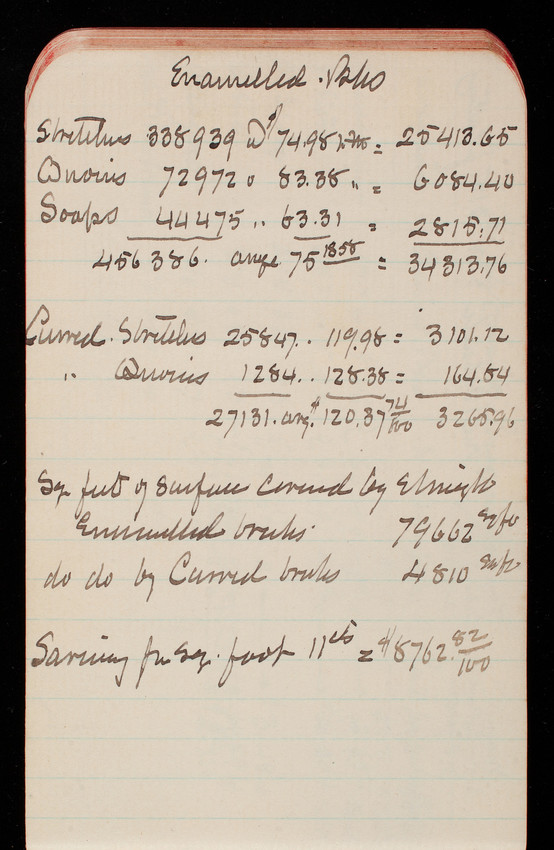 Enamelled Bks
Stretchers 338939 @ $74.98 per M = 25413.65
Quoins 72972 @ 83.38 " = 6084.40
Soaps 44475 " 63.31 = 2815.71
456386. avge 75 1858 = 34313.76
Curved Stretchers 25847 . . 119.98 = 3101.12
" Quoins 1284 . . 128.38 = 164.84
27131. avg. $120.37 74/100 3265.96
Sq. feet of surface covered by Straight
Enamelled bricks 79662 sq ft
do do by Curved bricks 4810 sq ft
Saving per sq. foot 11 cts = $8762.82/100